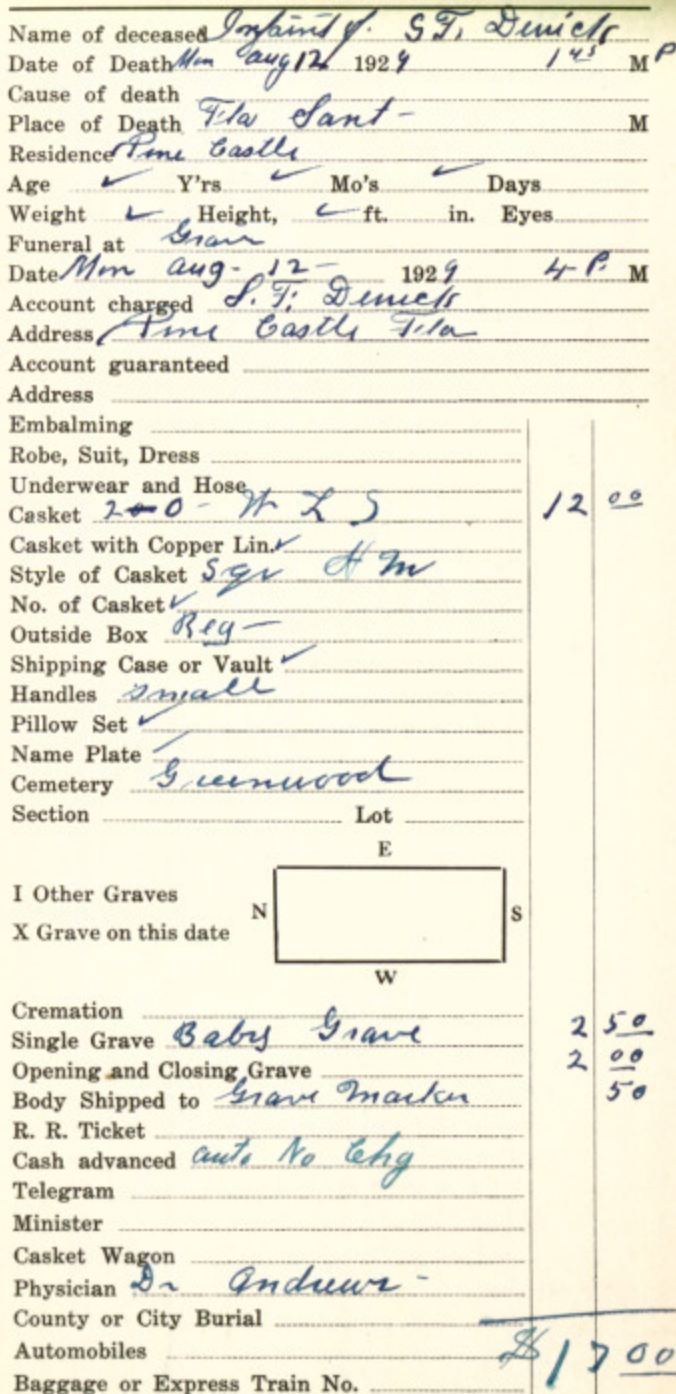 Name of deceased Infant of. S.T. Denick
Date of Death Mon Aug 12 1929 1 45 M P
Cause of death
Place of Death Fla Sant - M
Residence Pine Castle
Age ✓ Y'rs ✓ Mo's ✓ Days
Weight ✓ Height, ✓ ft. in. Eyes
Funeral at Grave
Date Mon Aug - 12 - 1929 4 P. M
Account charged S. T. Denick
Address Pine Castle Fla
Account guaranteed
Address
Embalming
Robe, Suit, Dress
Underwear and Hose
Casket 2-0 - W L S 12 00
Casket with Copper Lin. ✓
Style of Casket Sqr H M
No. of Casket ✓
Outside Box Reg -
Shipping Case or Vault ✓
Handles Small
Pillow Set ✓
Name Plate ✓
Cemetery Greenwood
Section Lot
E
I Other Graves
N S
X Grave on this date
W
Cremation
Single Grave Baby Grave 2 50
Opening and Closing Grave 2 00
Body Shipped to Grave Marker 50
R. R. Ticket
Cash advanced Auto No Chg
Telegram
Minister
Casket Wagon
Physician Dr Andrews -
County or City Burial
Automobiles $17 00
Baggage or Express Train No.